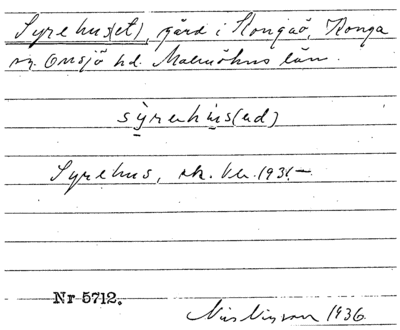 Syrehus(et), gård i Kongaö, Konga
sn. Onsjö hd. Malmöhus län.
sỳrehùs(əd)
Syrehus, sk. kv. 1931.—
Nr 5712.
1936